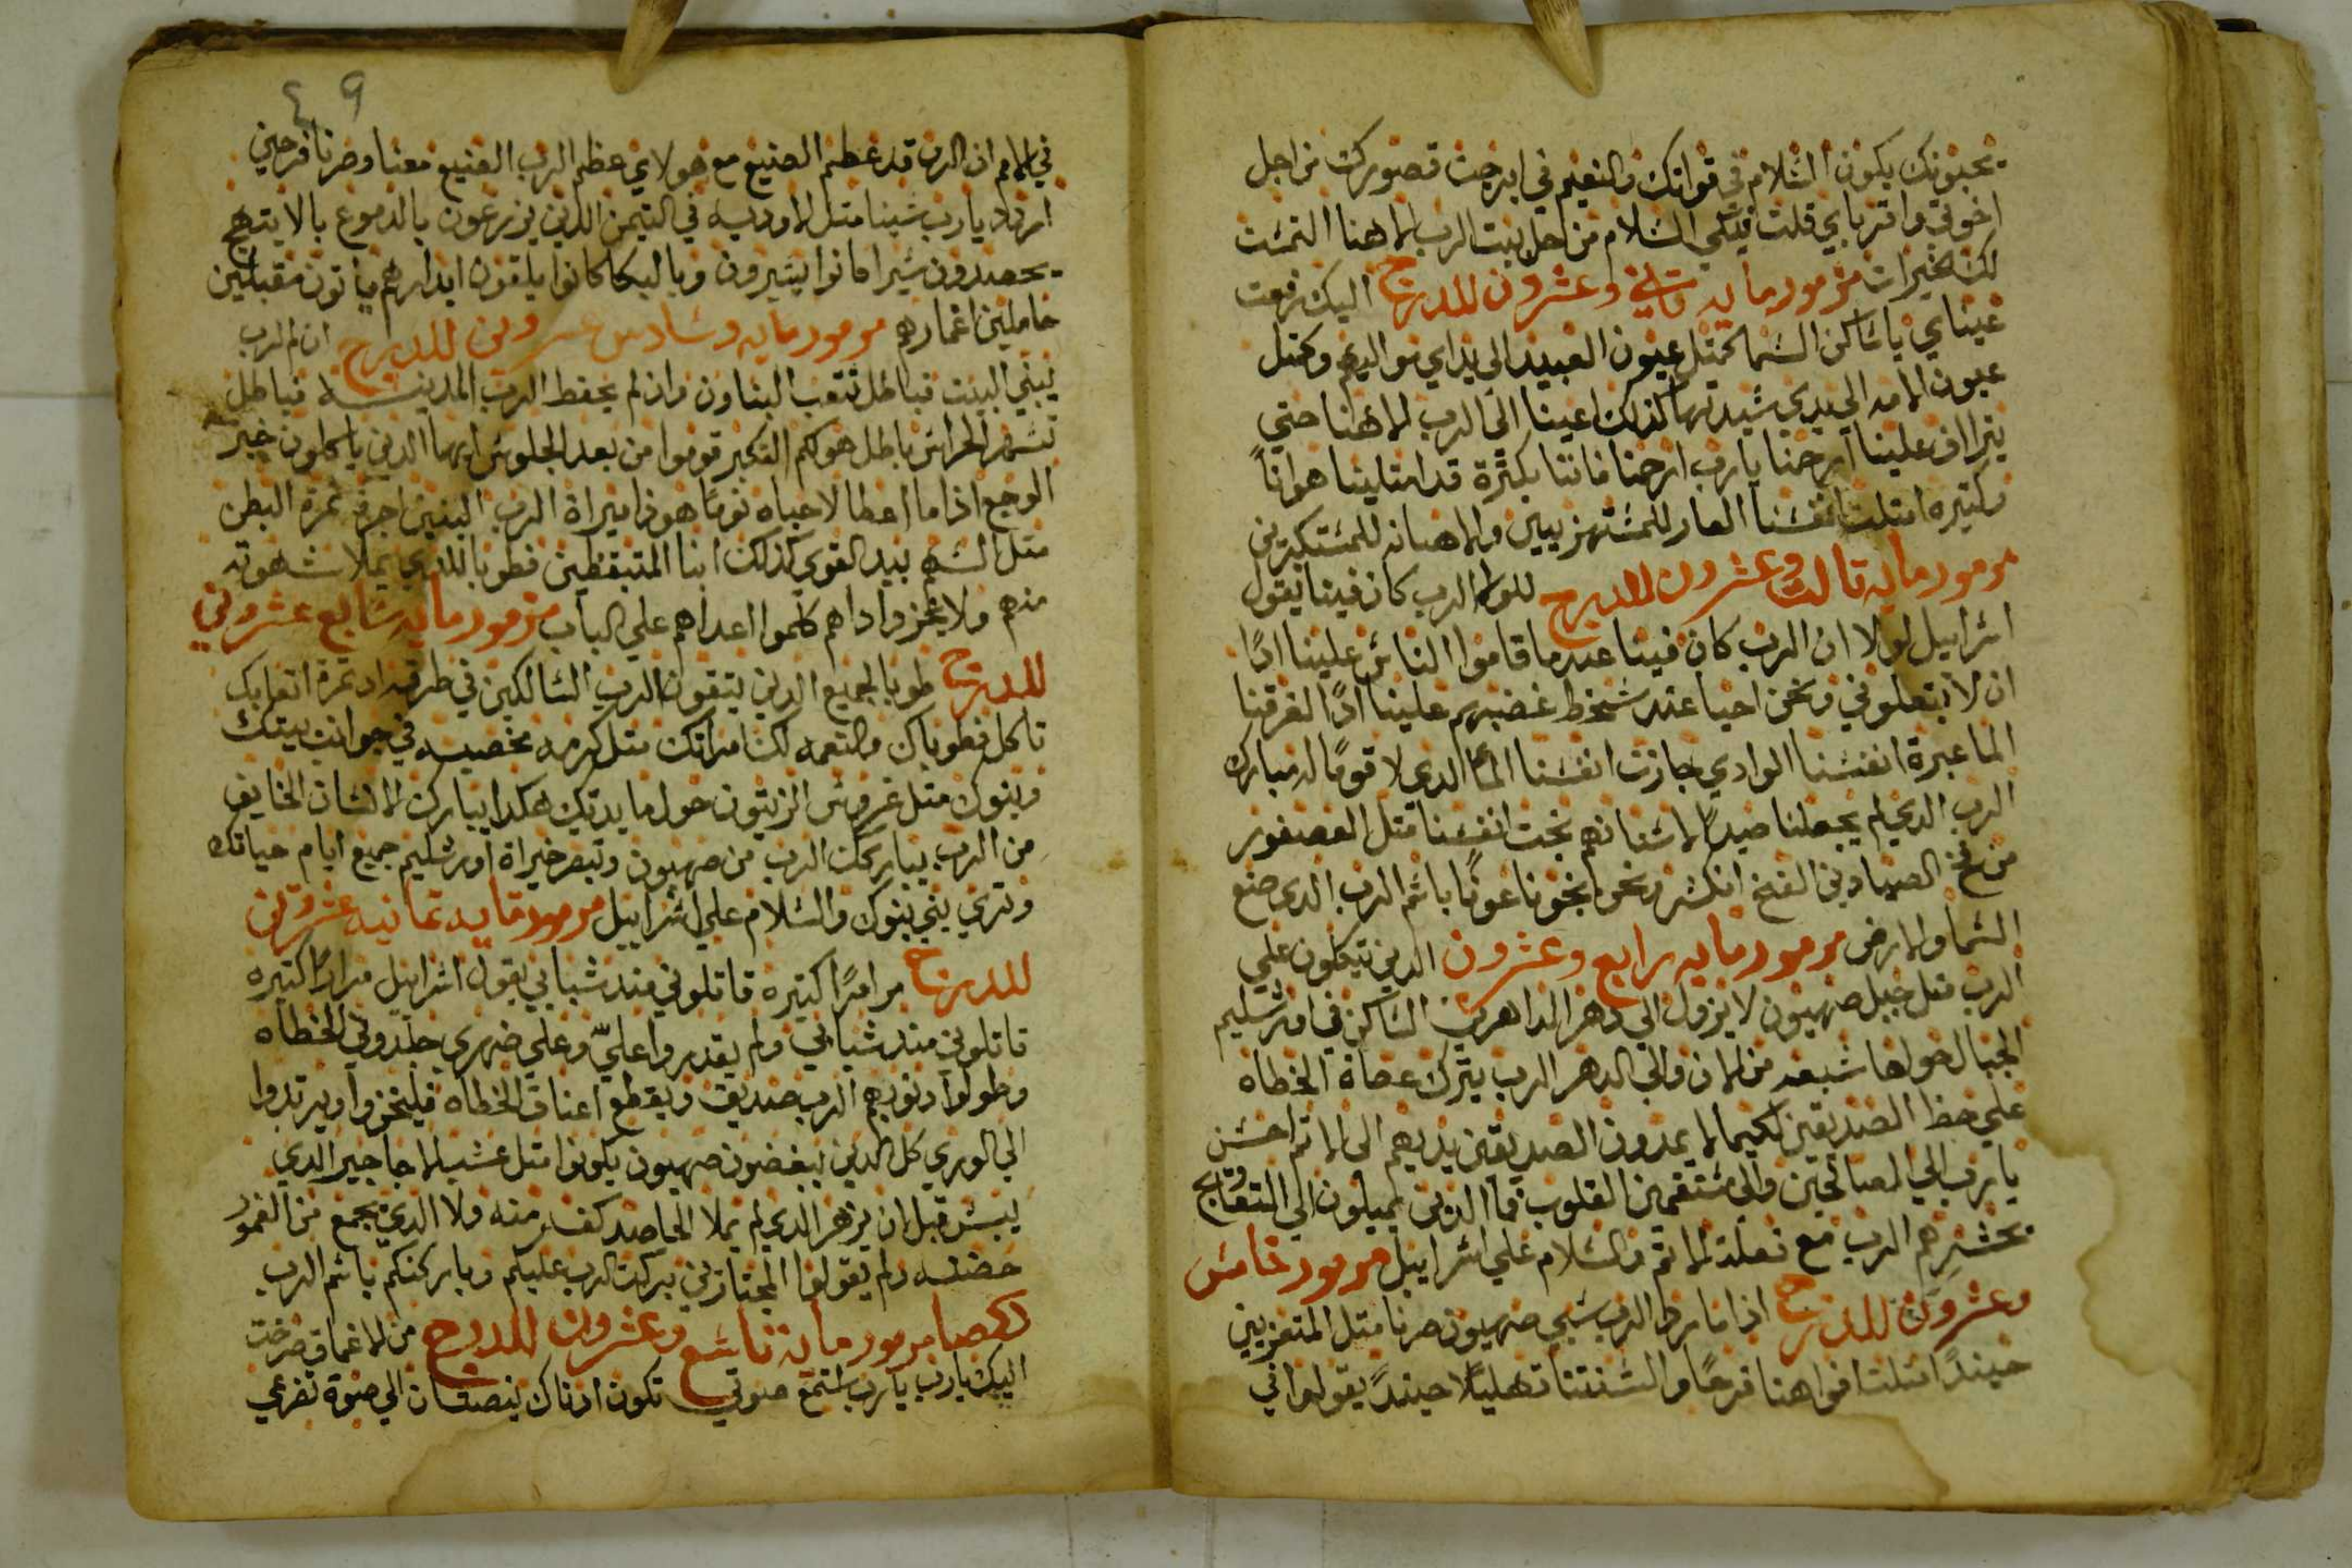 يحبونك يكون السلام في قواتك والنعيم في ابرجت قصورك من اجل
اخوتي واقرباي قلت فيكي السلام من اجل بيت الرب الاهنا التمست
لك الخيرات مزمور مايه ثاني وعشرون للدرج اليك رفعت
عيناي ياساكن السما كمتل عيون العبيد الي يداي مواليهم وكمتل
عيون الامه الي يدي سيدتها كذلك اعينا الي الرب الاهنا حتي
يتراف علينا ارحمنا يارب ارحمنا فاننا بكترة قد امتلينا هوانا
وكتيره امتلت انفسنا العار للمستهزيين والاهانه للمستكبرين
مزمور مايه تالت وعشرون للدرج للولا الرب كان فينا يقول
اسراييل لولا ان الرب كان فينا عندما قاموا الناس علينا ادًا
ان لابتعلوني ونحن احيا عند سخط غضبهم علينا ادًا لغرقنا
الما عبرة انفسنا الوادي جازت انفسنا الما الدي لا قومًا له مبارك
الرب الدي لم يجعلنا صيدًا لاسنانهم نجت انفسنا متل العصفور
من فخ الصيادين الفخ انكسر ونحن نجونا عوننا باسم الرب الدي صنع
السما والارض مزمور مايه رابع وعشرون الدين يتكلون علي
الرب متل جبل صهيون لا يزول الي دهر الداهرين الساكن في اورشليم
الجبال حولها شبعه من الان والي الدهر الرب يترك عصاة الخطاه
علي حظ الصديقين لكيما لا يمدون الصديقين يديهم الي الاتم احسن
يا رب الي الصالحين والي مستقمين القلوب فما الذين يميلون الي التعواج
يحشرهم الرب مع فعلة الاتم والسلام علي اسراييل مزمور خامس
وعشرون للدرج اذا ما رد الرب سبي صهيون صرنا متل المتعزيين
حينيدًا امتلت افواهنا فرحًا والسنتنا تهليلًا حينيدً يقولوا في
٤٩
في الامم ان الرب قد عظم الصنيع مع هولاي عظم الرب الصنيع معنا وصرنا فرحين
اردد يارب سبينا متل الاوديه في التيمن الدين يزرعون بالدموع بالابتهج
يحصدون سيرا كانوا يسيرون وبالبكا كانوا يلقون ابدارهم ياتون مقبلين
حاملين اغمارهم مزمور مايه وسادس عشرون للدرج ان لم الرب
يبني البيت فباطل تتعب البناون وان لم يحفظ الرب المدينه فباطل
تسهر الحراس باطل هو لكم التكبير قوموا من بعد الجلوس ايها الدين ياكلون خبز
الوجع اذا ما اعطا لاحباه نومًا هوذا ميراة الرب البنين اجرة تمرة البطن
متل السهم بيد القوي كذلك ابنا المتيقظين فطوبا للدي يملا شهوته
منهم ولا يخزوا اداهم كلموا اعداهم علي الباب مزمور مايه سابع عشرون
للدرج طوبا لجميع الدين يتقون الرب السالكين في طرقه ادتمرة اتعابك
تاكل فطوباك والنعمه لك امراتك متل كرمه مخصبه في جوانب بيتك
وبنوك متل غروس الزيتون حول مايدتك هكدا يبارك الانسان الخايف
من الرب يباركك الرب من صهيون وتبصر خيراة اورشليم جميع ايام حياتك
وتري بني بنوك والسلام علي اسراييل مزمور مايه تمانيه عشرون
للدرج مرارًا كتيره قاتلوني مند شبابي يقول اسراييل مرارًا كتيره
قاتلوني مند شبابي ولم يقدروا عليّ وعلي ضهري جلدوني الخطاه
وطولوا دنوبهم الرب صديق ويقطع اعناق الخطاه فليخزوا ويرتدوا
الي الوري كل الدين يبغضون صهيون يكونوا متل عشب الاجاجير الدي
يبس قبل ان يزهر الدي لم يملا الحاصد كفه منه ولا الدي يجمع من الغمور
حضنه ولم يقولوا المجتازين بركت الرب عليكم وباركنكم باسم الرب
مزمور مايه تاسع وعشرون للدرج من الاعماق صرخت
اليك يارب يارب استمع صوتي تكون ادناك ينصتان الي صوة تضرعي